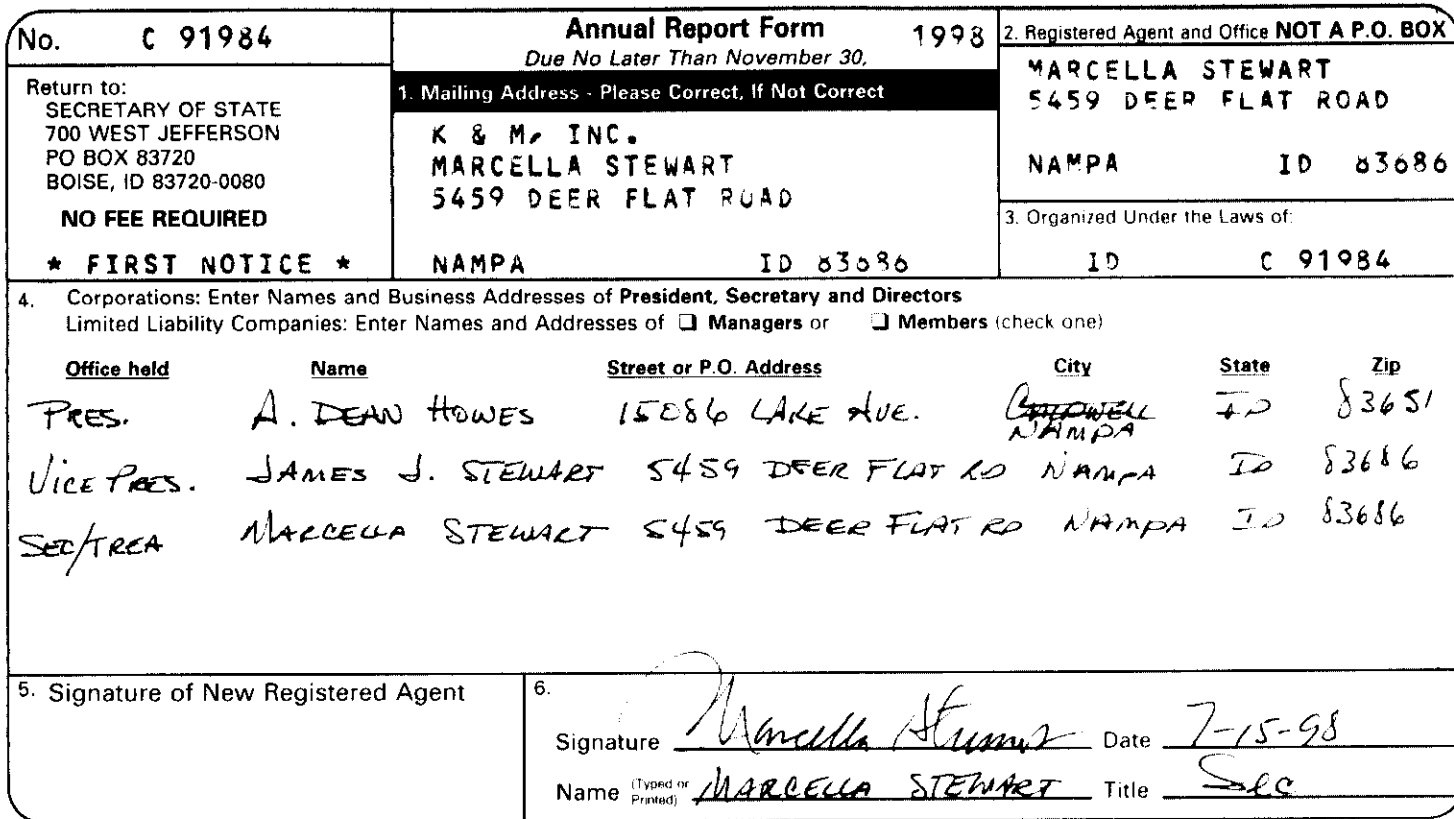 No. C 91984
Return to:
SECRETARY OF STATE
700 WEST JEFFERSON
PO BOX 83720
BOISE, ID 83720-0080
NO FEE REQUIRED
* FIRST NOTICE *
Annual Report Form 1998
Due No Later Than November 30,
1. Mailing Address - Please Correct, If Not Correct
K & M, INC.
MARCELLA STEWART
5459 DEER FLAT ROAD
NAMPA ID 83686
2. Registered Agent and Office NOT A P.O. BOX
MARCELLA STEWART
5459 DEER FLAT ROAD
NAMPA ID 83686
3. Organized Under the Laws of:
ID C 91984
4. Corporations: Enter Names and Business Addresses of President, Secretary and Directors
Limited Liability Companies: Enter Names and Addresses of ❑ Managers or ❑ Members (check one)
Office held Name Street or P.O. Address City State Zip
PRES. A. DEAN HOWES 15086 LAKE AVE. CALDWELL ID 83651
NAMPA
VICE PRES. JAMES J. STEWART 5459 DEER FLAT RD NAMPA ID 83686
SEC/TREA MARCELLA STEWART 5459 DEER FLAT RD NAMPA ID 83686
5. Signature of New Registered Agent
6.
Signature Marcella Stewart Date 7-15-98
Name (Typed or Printed) MARCELLA STEWART Title Sec